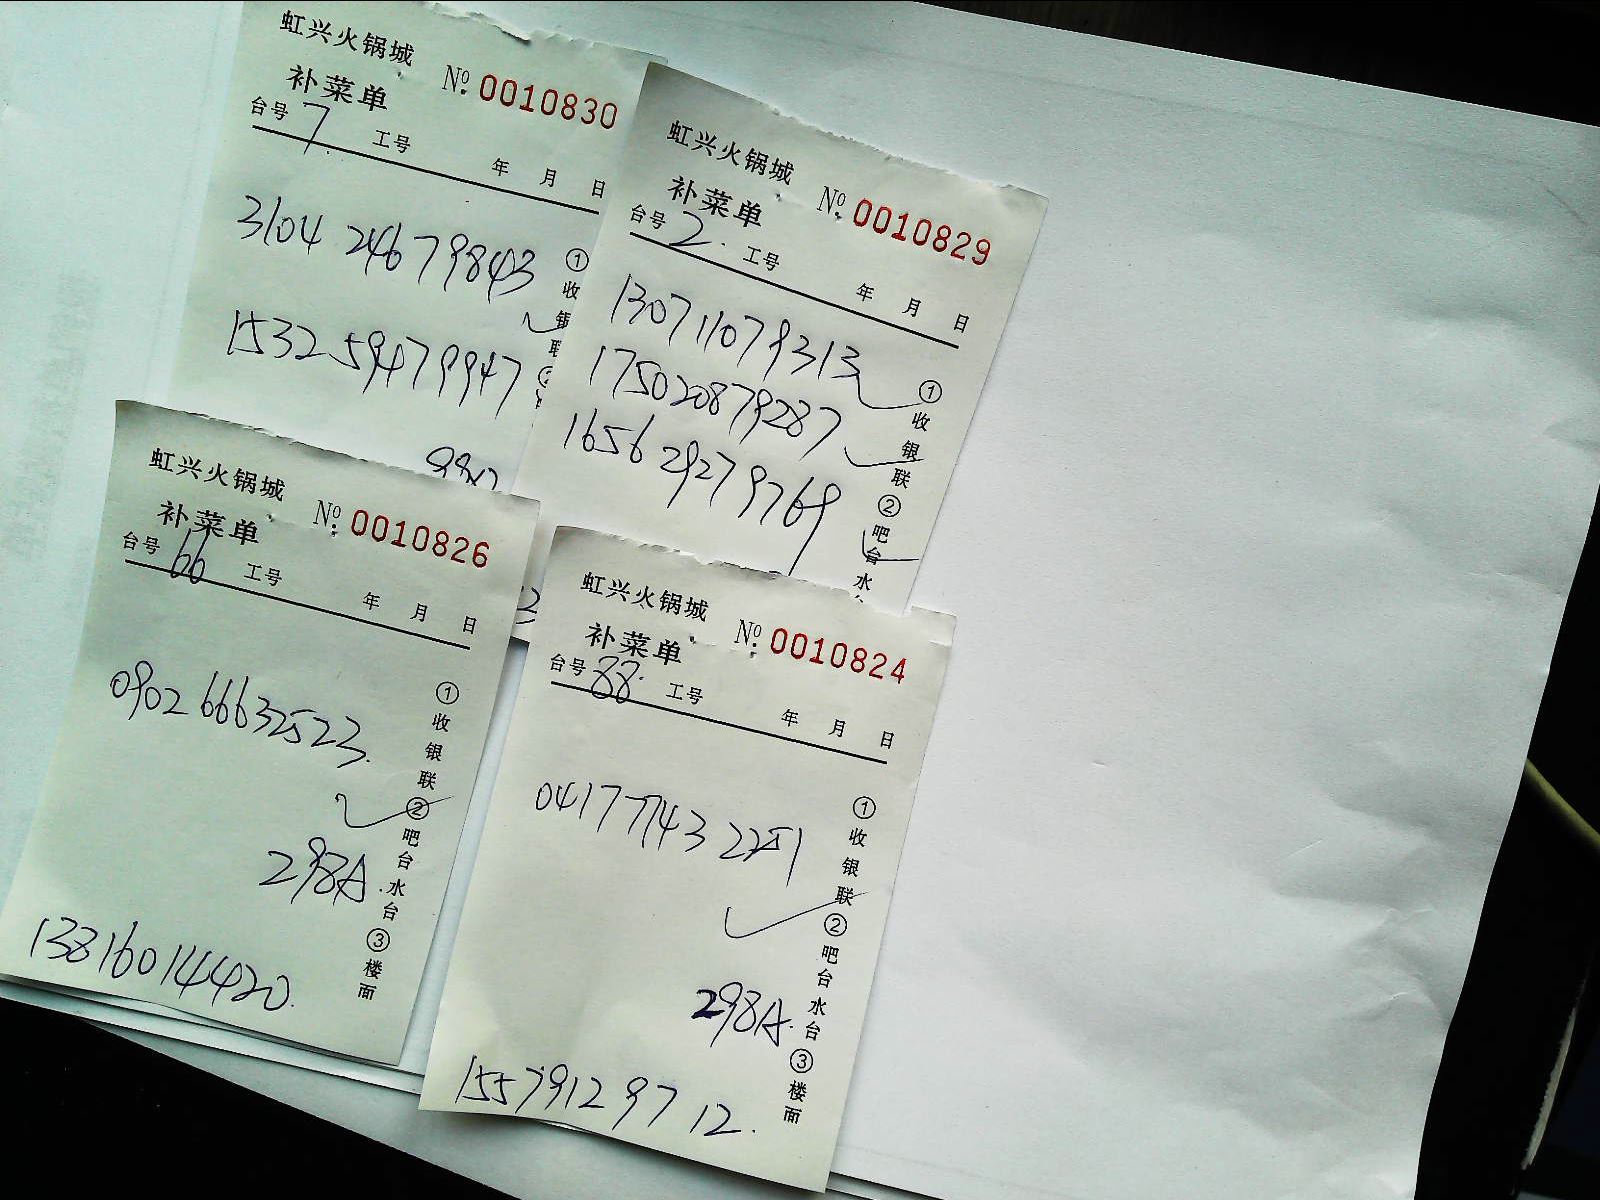 虹兴火锅城
补菜单 Nº: 0010830
台号 7 工号
年 月 日
3104 24679843
1532 59479947
①收银联
虹兴火锅城
补菜单 Nº: 0010829
台号 2. 工号
年 月 日
130711079313
175020879287
1656 29279769
①收银联②吧台水
虹兴火锅城
补菜单 Nº: 0010826
台号 66 工号
年 月 日
0902 66632523.
298A.
13816014420.
①收银联②吧台水台③楼面
虹兴火锅城
补菜单 Nº: 0010824
台号 88. 工号
年 月 日
0417 7743 2251
298A.
15579129712.
①收银联②吧台水台③楼面